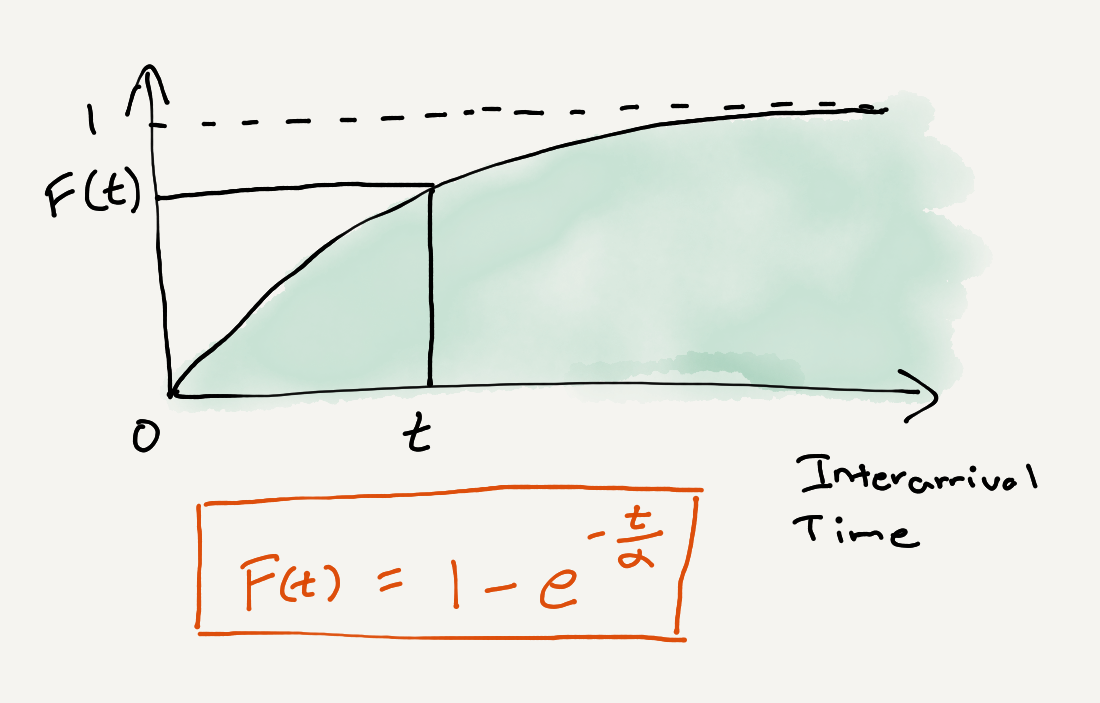 1
F(t)
0
t
Interarrival
Time
F(t) = 1 - e^{-\frac{t}{α}}